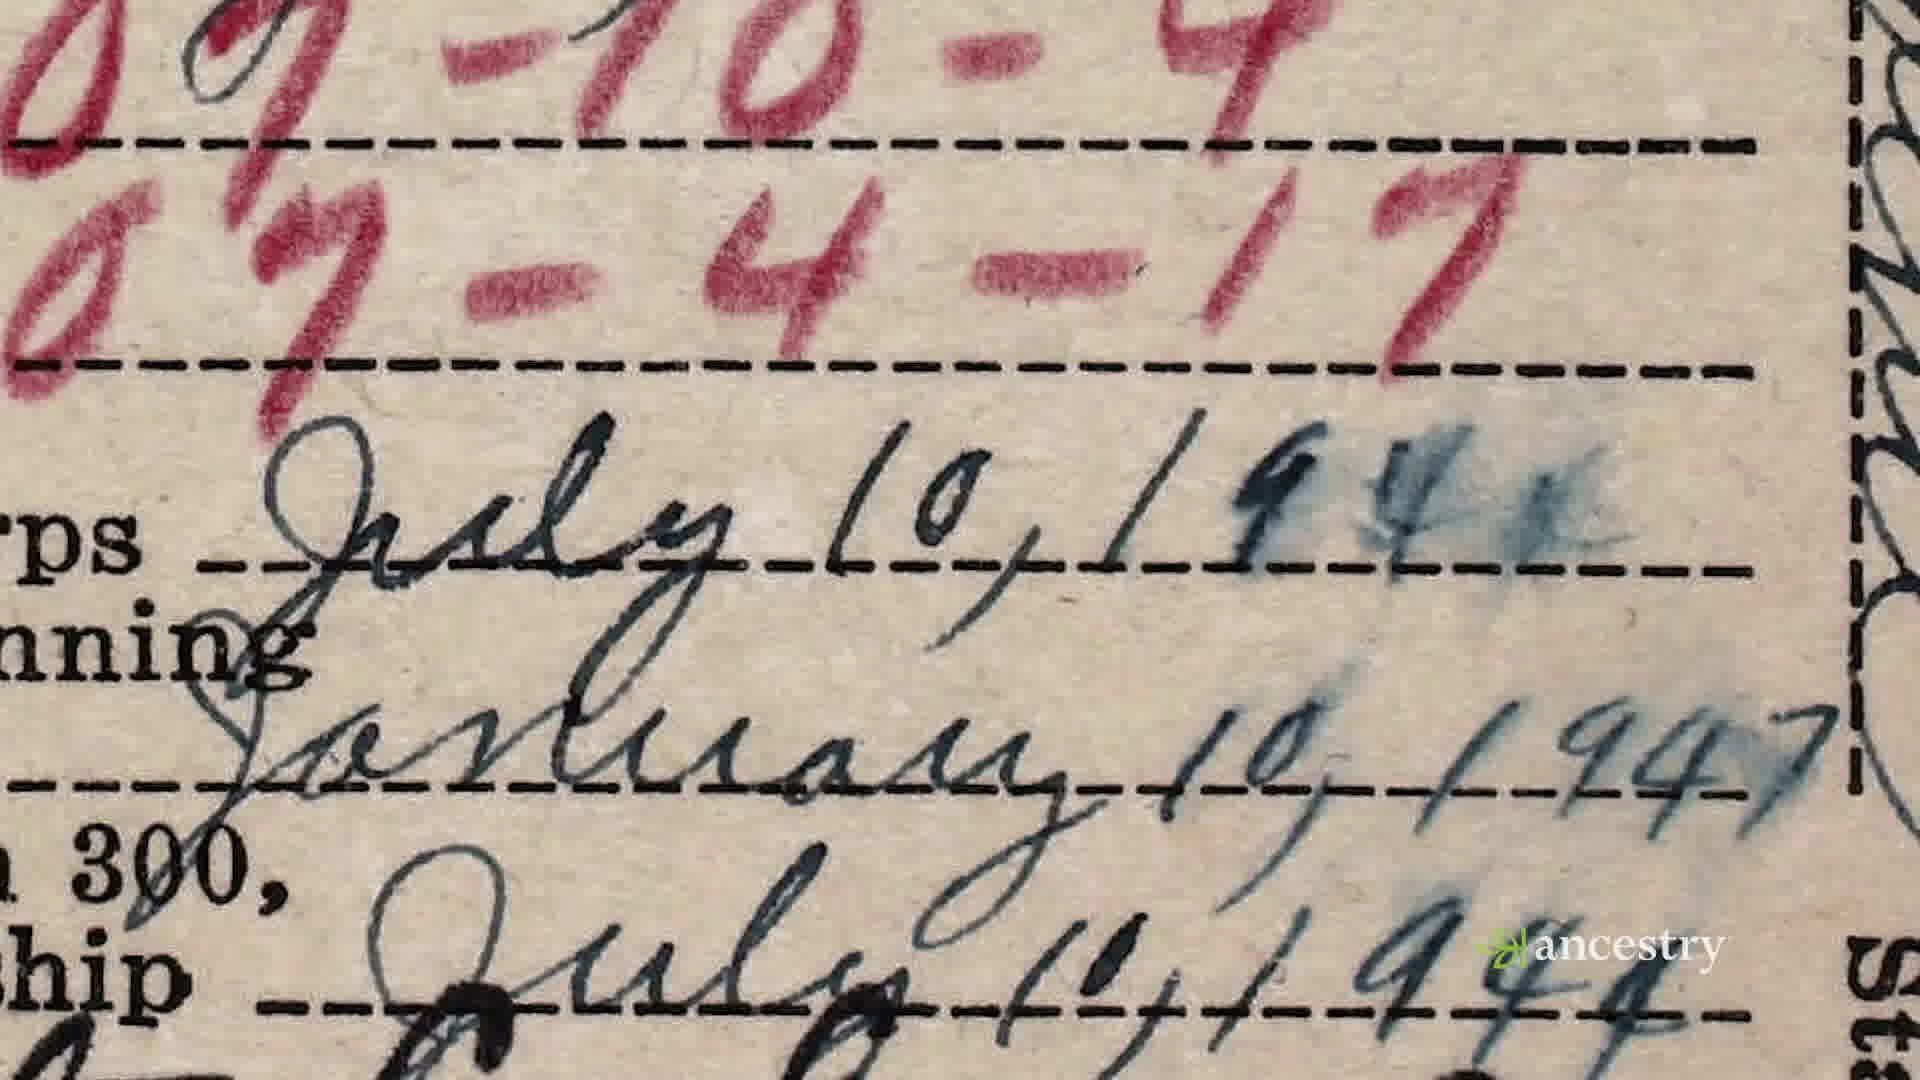 07-10-4
07-4-17
rps July 10, 1944
nning
January 10, 1947
300,
ship July 10, 1944
ancestry
Sta